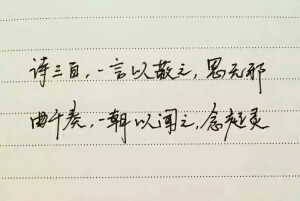 诗三百,一言以蔽之,思无邪
曲千奏,一朝以闻之,念起灵